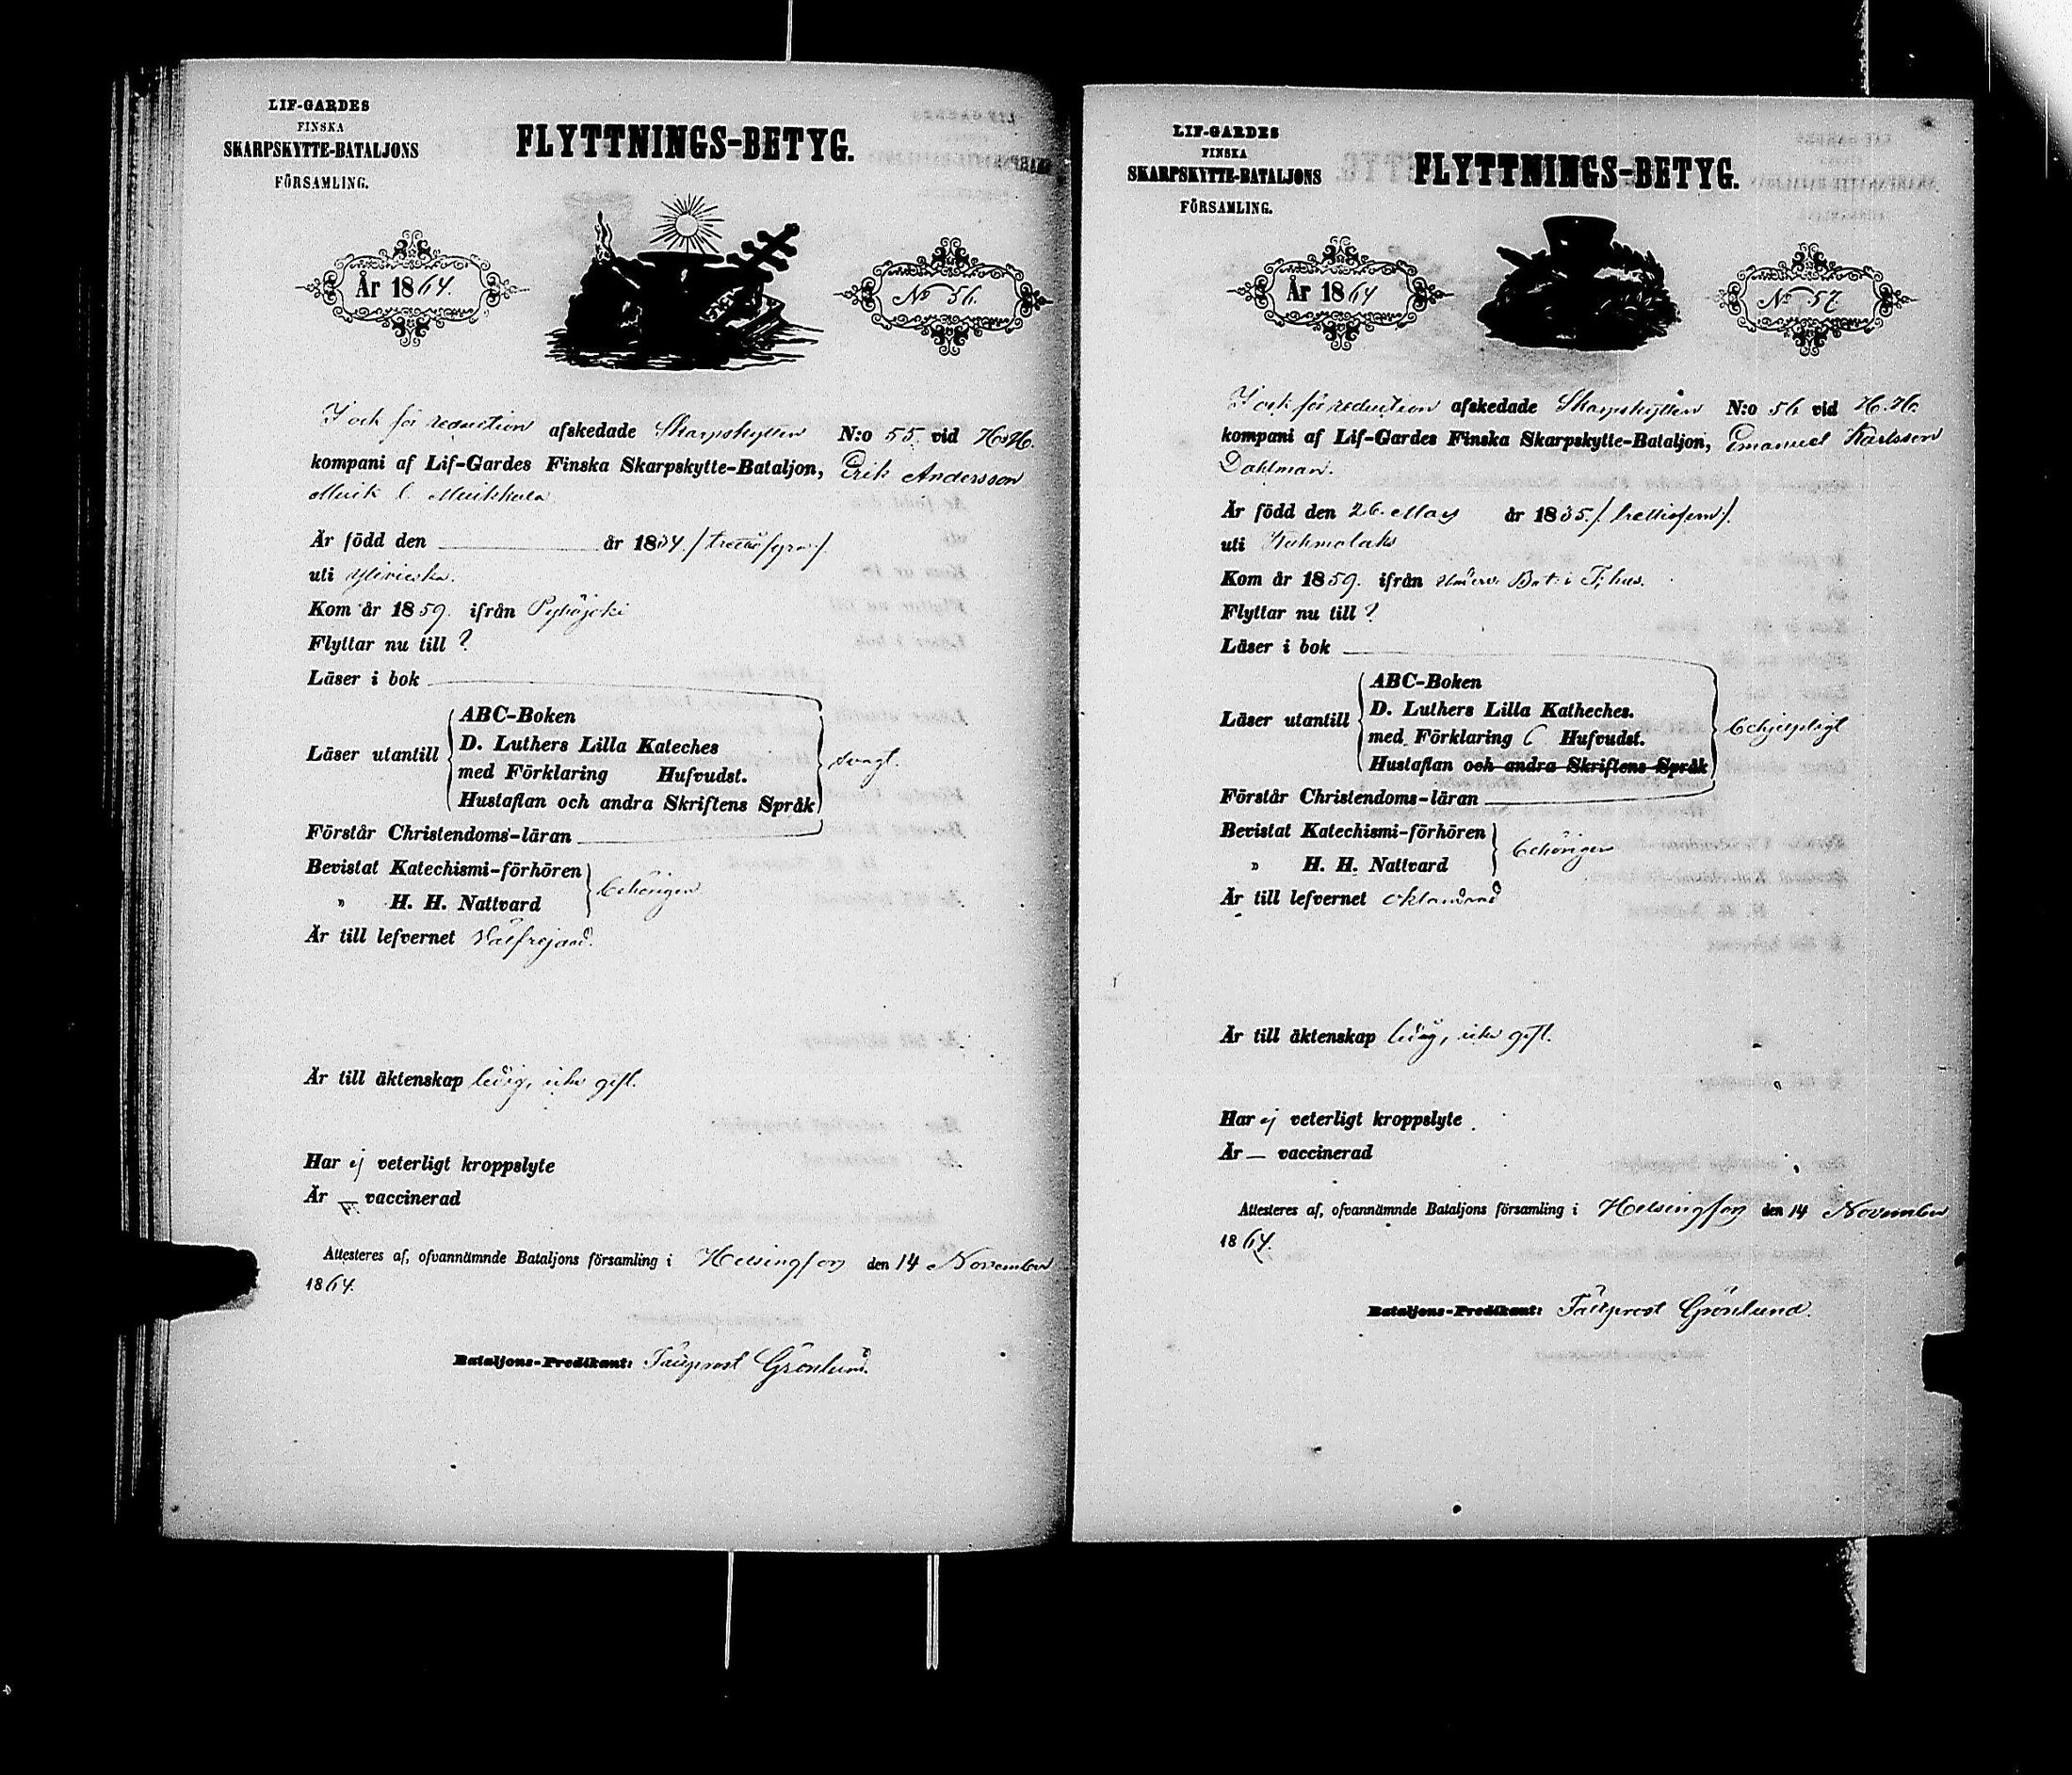 LIF-GARDES
FINSKA
SKARPSKYTTE-BATALJONS
FÖRSAMLING.
FLYTTNINGS-BETYG.
År 1864.
No 56.
I och för reduction afskedade Skarpskytten N:o 55. vid H.H.
kompani af Lif-Gardes Finska Skarpskytte-Bataljon, Erik Andersson
Är född den år 1834./trettiofyra/.
uti Ylivieska.
Kom år 1859. ifrån Pyhäjoki
Flyttar nu till ?
Läser i bok
Läser utantill
ABC-Boken
D. Luthers Lilla Kateches
med Förklaring Hufvudst.
Hustaflan och andra Skriftens Språk
svagt.
Förstår Christendoms-läran
Bevistat Katechismi-förhören
" H. H. Nattvard
behörigen
Är till lefvernet Välfrejdad.
Är till äktenskap ledig, icke gift.
Har ej veterligt kroppslyte
Är — vaccinerad
Attesteres af, ofvannämnde Bataljons församling i Helsingfors den 14 November
1864.
Bataljons-Predikant: Fältprost Grönlund.
LIF-GARDES
FINSKA
SKARPSKYTTE-BATALJONS
FÖRSAMLING.
FLYTTNINGS-BETYG.
År 1864
No 57
I och för reduction afskedade Skarpskytten N:o 56 vid H.H.
kompani af Lif-Gardes Finska Skarpskytte-Bataljon, Emanuel Karlsson
Dahlman.
Är född den 26. Maj år 1835./trettiofem/.
uti Kuhmalaks
Kom år 1859. ifrån Underv. Bat. i T:hus.
Flyttar nu till ?
Läser i bok
Läser utantill
ABC-Boken
D. Luthers Lilla Katheches.
med Förklaring 6 Hufvudst.
Hustaflan och andra Skriftens Språk
behjelpligt
Förstår Christendoms-läran
Bevistat Katechismi-förhören
" H. H. Nattvard
behörigen
Är till lefvernet oklandrad
Är till äktenskap ledig, icke gift.
Har ej veterligt kroppslyte
Är — vaccinerad
Attesteres af, ofvannämnde Bataljons församling i Helsingfors den 14 November
1864.
Bataljons-Predikant: Fältprost Grönlund.